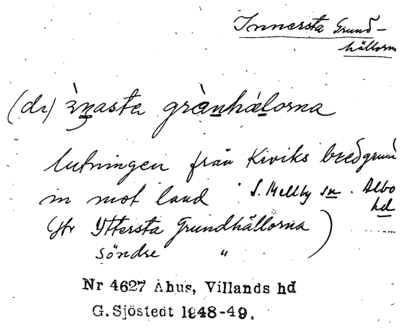 Innersta Grund-
hällorna
(di) ìnasta grànhælorna
lutningen från Kiviks bredgrund
in mot land S. Mellby sn. Albo
hd
(jfr Yttersta Grundhällorna)
söndre "
Nr 4627 Åhus, Villands hd
G. Sjöstedt 1948-49.